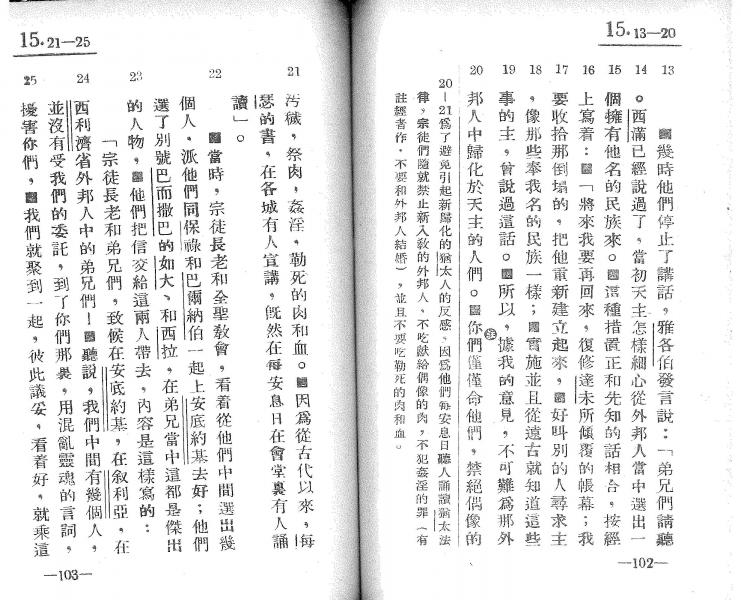 15.13—20
13 幾時他們停止了講話，雅各伯發言說：「弟兄們請聽
14 。西滿已經說過了，當初天主怎樣細心從外邦人當中選出一
15 個擁有他名的民族來。這種措置正和先知的話相合，按經
16 上寫着：「將來我要再回來，復修達未所傾覆的帳幕；我
17 要收拾那倒塌的，把他重新建立起來，好叫別的人尋求主
18 ，像那些奉我名的民族一樣；實施並且從遠古就知道這些
19 事的主，曾說過這話。所以，據我的意見，不可難爲那外
20 邦人中歸化於天主的人們。註你們僅僅命他們，禁絕偶像的
20—21爲了避免引起新歸化的猶太人的反感，因爲他們每安息日聽人誦讀猶太法
律，宗徒們隨就禁止新入敎的外邦人，不吃獻給偶像的肉，不犯姦淫的罪（有
註經者作，不要和外邦人結婚），並且不要吃勒死的肉和血。
—102—
15.21—25
21 汚穢，祭肉，姦淫，勒死的肉和血。因爲從古代以來，每
瑟的書，在各城有人宣講，旣然在每安息日在會堂裏有人誦
讀」。
22 當時，宗徒長老和全聖敎會，看着從他們中間選出幾
個人，派他們同保祿和巴爾納伯一起上安底約基去好；他們
選了別號巴而撒巴的如大、和西拉，在弟兄當中這都是傑出
23 的人物，他們把信交給這兩人帶去，內容是這樣寫的：
「宗徒長老和弟兄們，致候在安底約基，在敘利亞，在
24 西利濟省外邦人中的弟兄們！聽說，我們中間有幾個人，
並沒有受我們的委託，到了你們那裏，用混亂靈魂的言詞，
25 擾害你們，我們就聚到一起，彼此議妥，看着好，就乘這
—103—